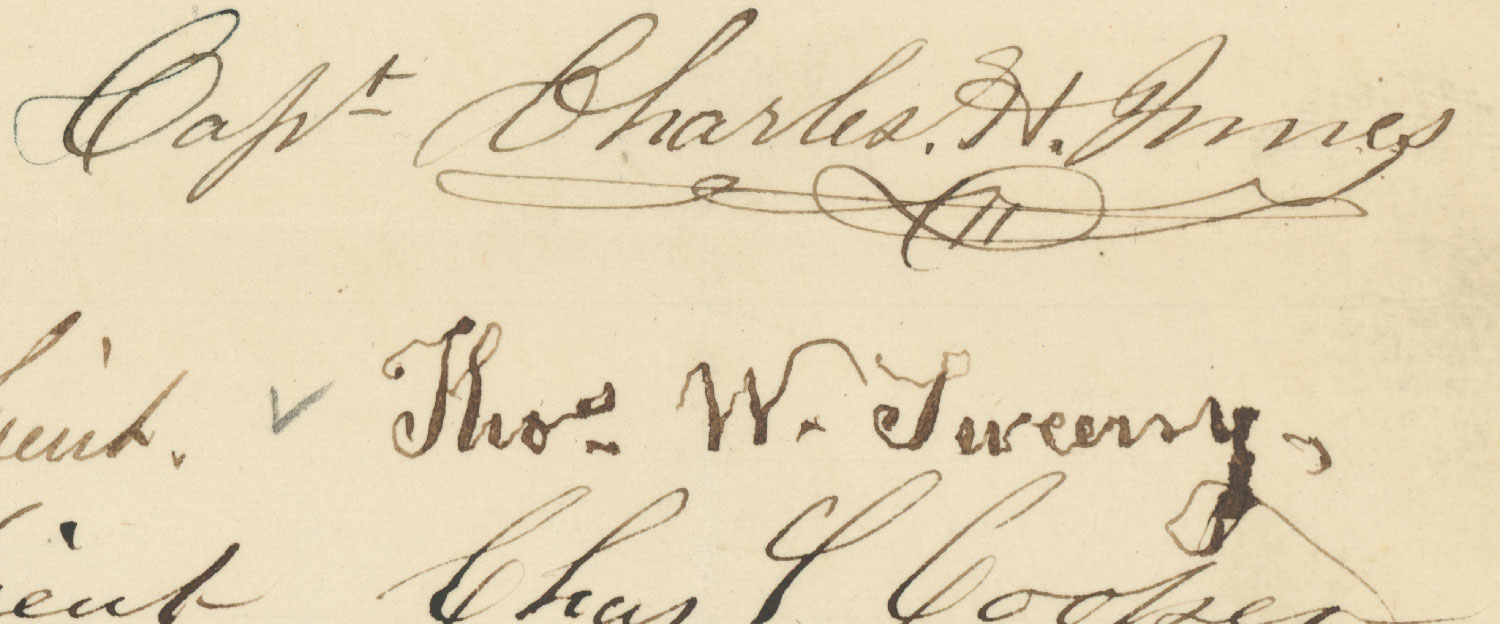 Capt Charles. H. Innes
Lieut. Thos. W. Sweeny,
Lieut Chas S Cooper